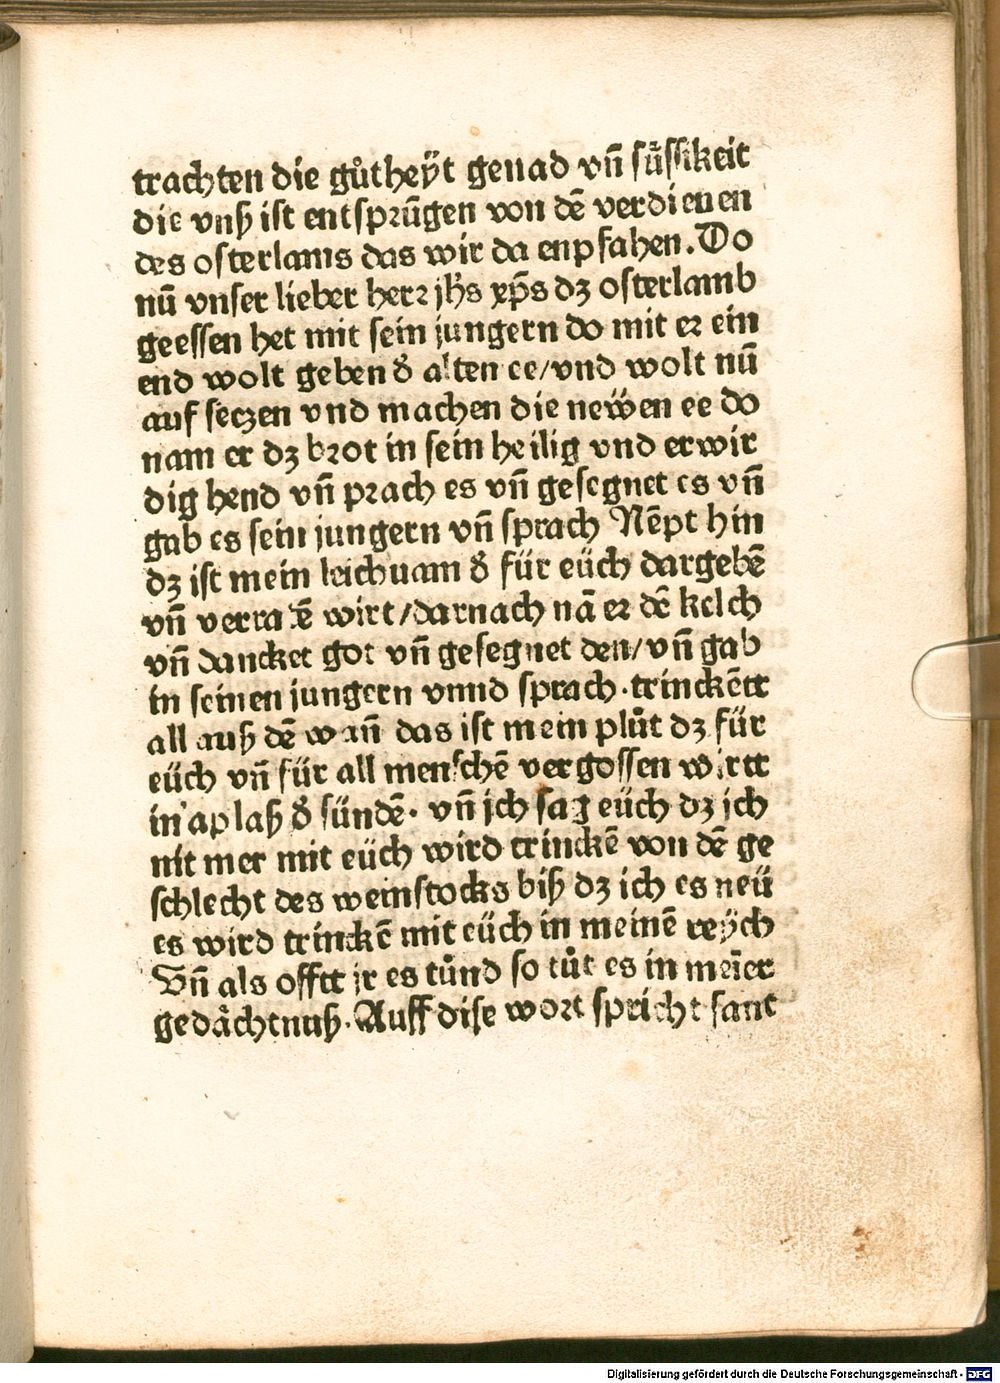 trachten die gůtheÿt genad vñ sü̊ssikeit
die vnß ist entsprūgen von dē verdienen
des osterlams das wir da enpfahen. Do
nū vnser lieber herꝛ jh̄s xp̄s dꝫ osterlamb
geessen het mit sein jungern do mit eꝛ ein
end wolt geben d̕ alten ee/vnd wolt nū
auf seczen vnd machen die neẅen ee do
nam er dꝫ bꝛot in sein heilig vnd erwir
dig hend vñ pꝛach es vñ gesegnet es vñ
gab es sein jungern vñ sprach Nēpt hin
dꝫ ist mein leichnam d̕ für eüch dargebē
vñ verratē wirt/darnach nā eꝛ dē kelch
vñ dancket got vñ gesegnet den/vñ gab
in seinen jungern vnnd sprach. trinckētt
all auß dē wañ das ist mein plůt dꝫ für
eüch vñ für all menschē vergossen wirtt
in aplaß d̕ sündē. vñ jch sag eüch dꝫ jch
nit mer mit eüch wird trinckē von dē ge
schlecht des weinstocks biß dꝫ ich es neü
es wird trinckē mit eüch in meinē reÿch
Vñ als offtt jr es tůnd so tůt es in meīer
gedåchtnuß. Auff dise wort spricht sant
Digitalisierung gefördert durch die Deutsche Forschungsgemeinschaft - DFG